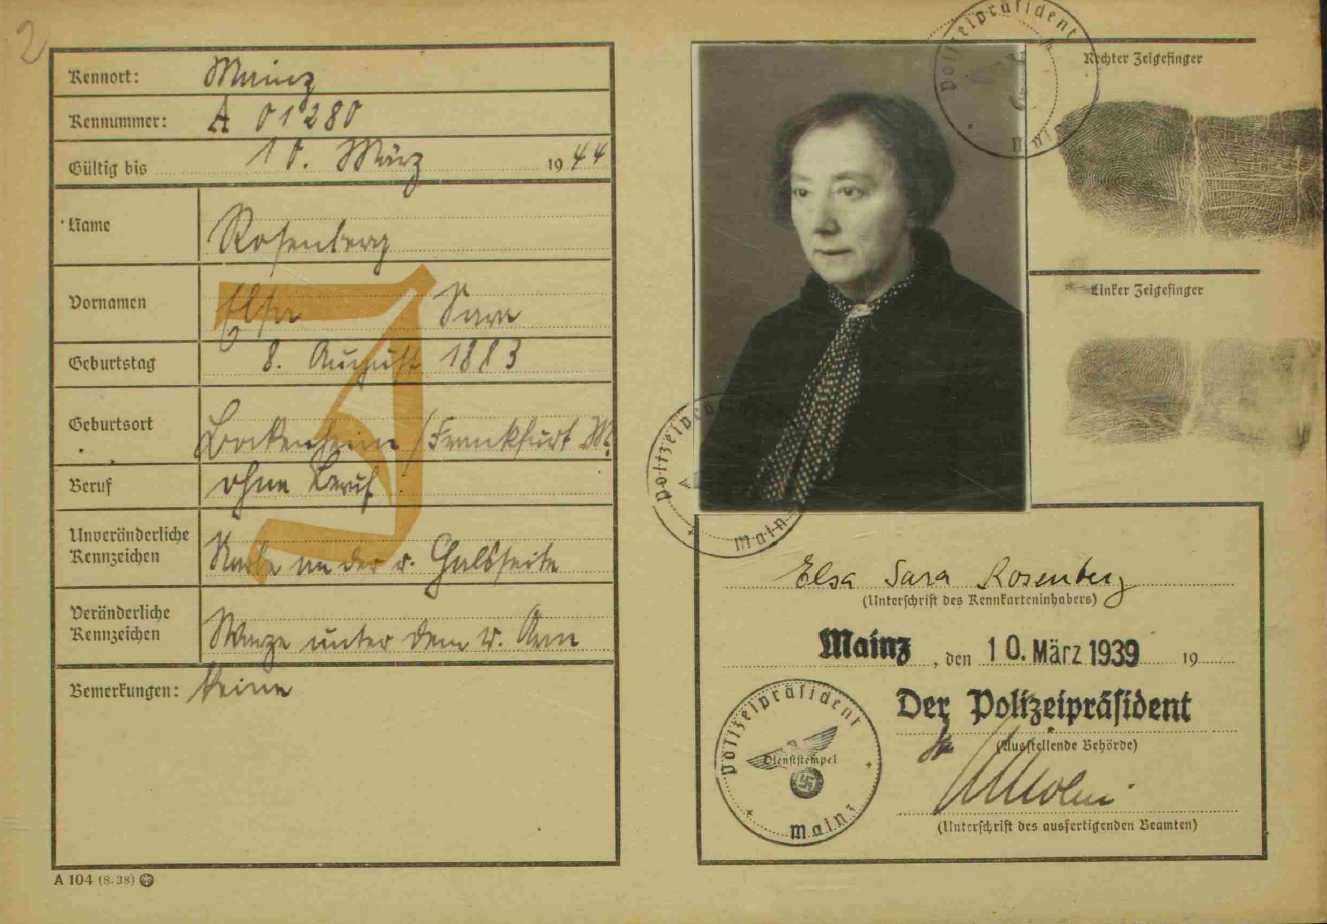 2
Kennort: Mainz
Kennummer: A 01280
Gültig bis 10. März 1944
Name Rosenberg
Vornamen Elsa Sara
Geburtstag 8. August 1883
Geburtsort Bockenheim / Frankfurt M.
Beruf ohne Beruf
Unveränderliche Kennzeichen Narbe an der r. Halsseite
Veränderliche Kennzeichen Warze unter dem r. Arm
Bemerkungen: keine
J
A 104 (8.38)
Polizeipräsident
Rechter Zeigefinger
Linker Zeigefinger
Polizeipräsident
Mainz
Elsa Sara Rosenberg
(Unterschrift des Kennkarteninhabers)
Mainz, den 10. März 1939 19
Der Polizeipräsident
(Ausstellende Behörde)
Polizeipräsident
Dienststempel
Mainz
(Unterschrift des ausfertigenden Beamten)